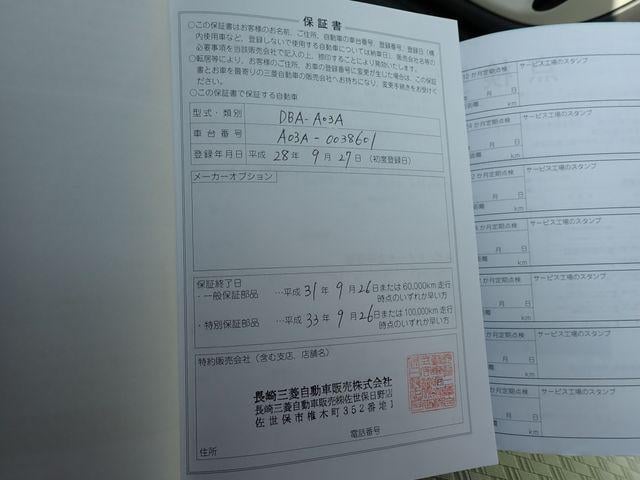 保証書
○この保証書はお客様のお名前、ご住所、自動車の車台番号、登録番号、登録日（構
内使用車など、登録しないで使用する自動車については納車日）、販売会社名等の
必要事項を当該販売会社で記入の上、捺印することにより発効いたします。
○転居等により、お客様のご住所、お車の登録番号に変更が生じた場合は、この保証
書とお車を最寄りの三菱自動車の販売会社へお持ちになり、変更手続きをお受けく
ださい。
○この保証書で保証する自動車
型式・類別 DBA-A03A
車台番号 A03A-0038601
登録年月日 平成 28年 9月 27日（初度登録日）
メーカーオプション
保証終了日
・一般保証部品 …平成 31年 9月26日または60,000km走行
時点のいずれか早い方
・特別保証部品 …平成 33年 9月26日または100,000km走行
時点のいずれか早い方
特約販売会社（含む支店、店舗名）
長崎三菱自動車販売株式会社
長崎三菱自動車販売㈱佐世保日野店
佐世保市椎木町352番地1
電話番号
住所
か月定期点検 サービス工場のスタンプ
月 日
距離 km
か月定期点検 サービス工場のスタンプ
月 日
距離 km
か月定期点検 サービス工場のスタンプ
月 日
距離 km
か月定期点検 サービス工場のスタンプ
月 日
km
か月定期点検 サービス工場のスタンプ
月 日
km
か月定期点検 サービス工場のスタンプ
月 日
km
か月定期点検 サービス工場のスタンプ
月 日
km